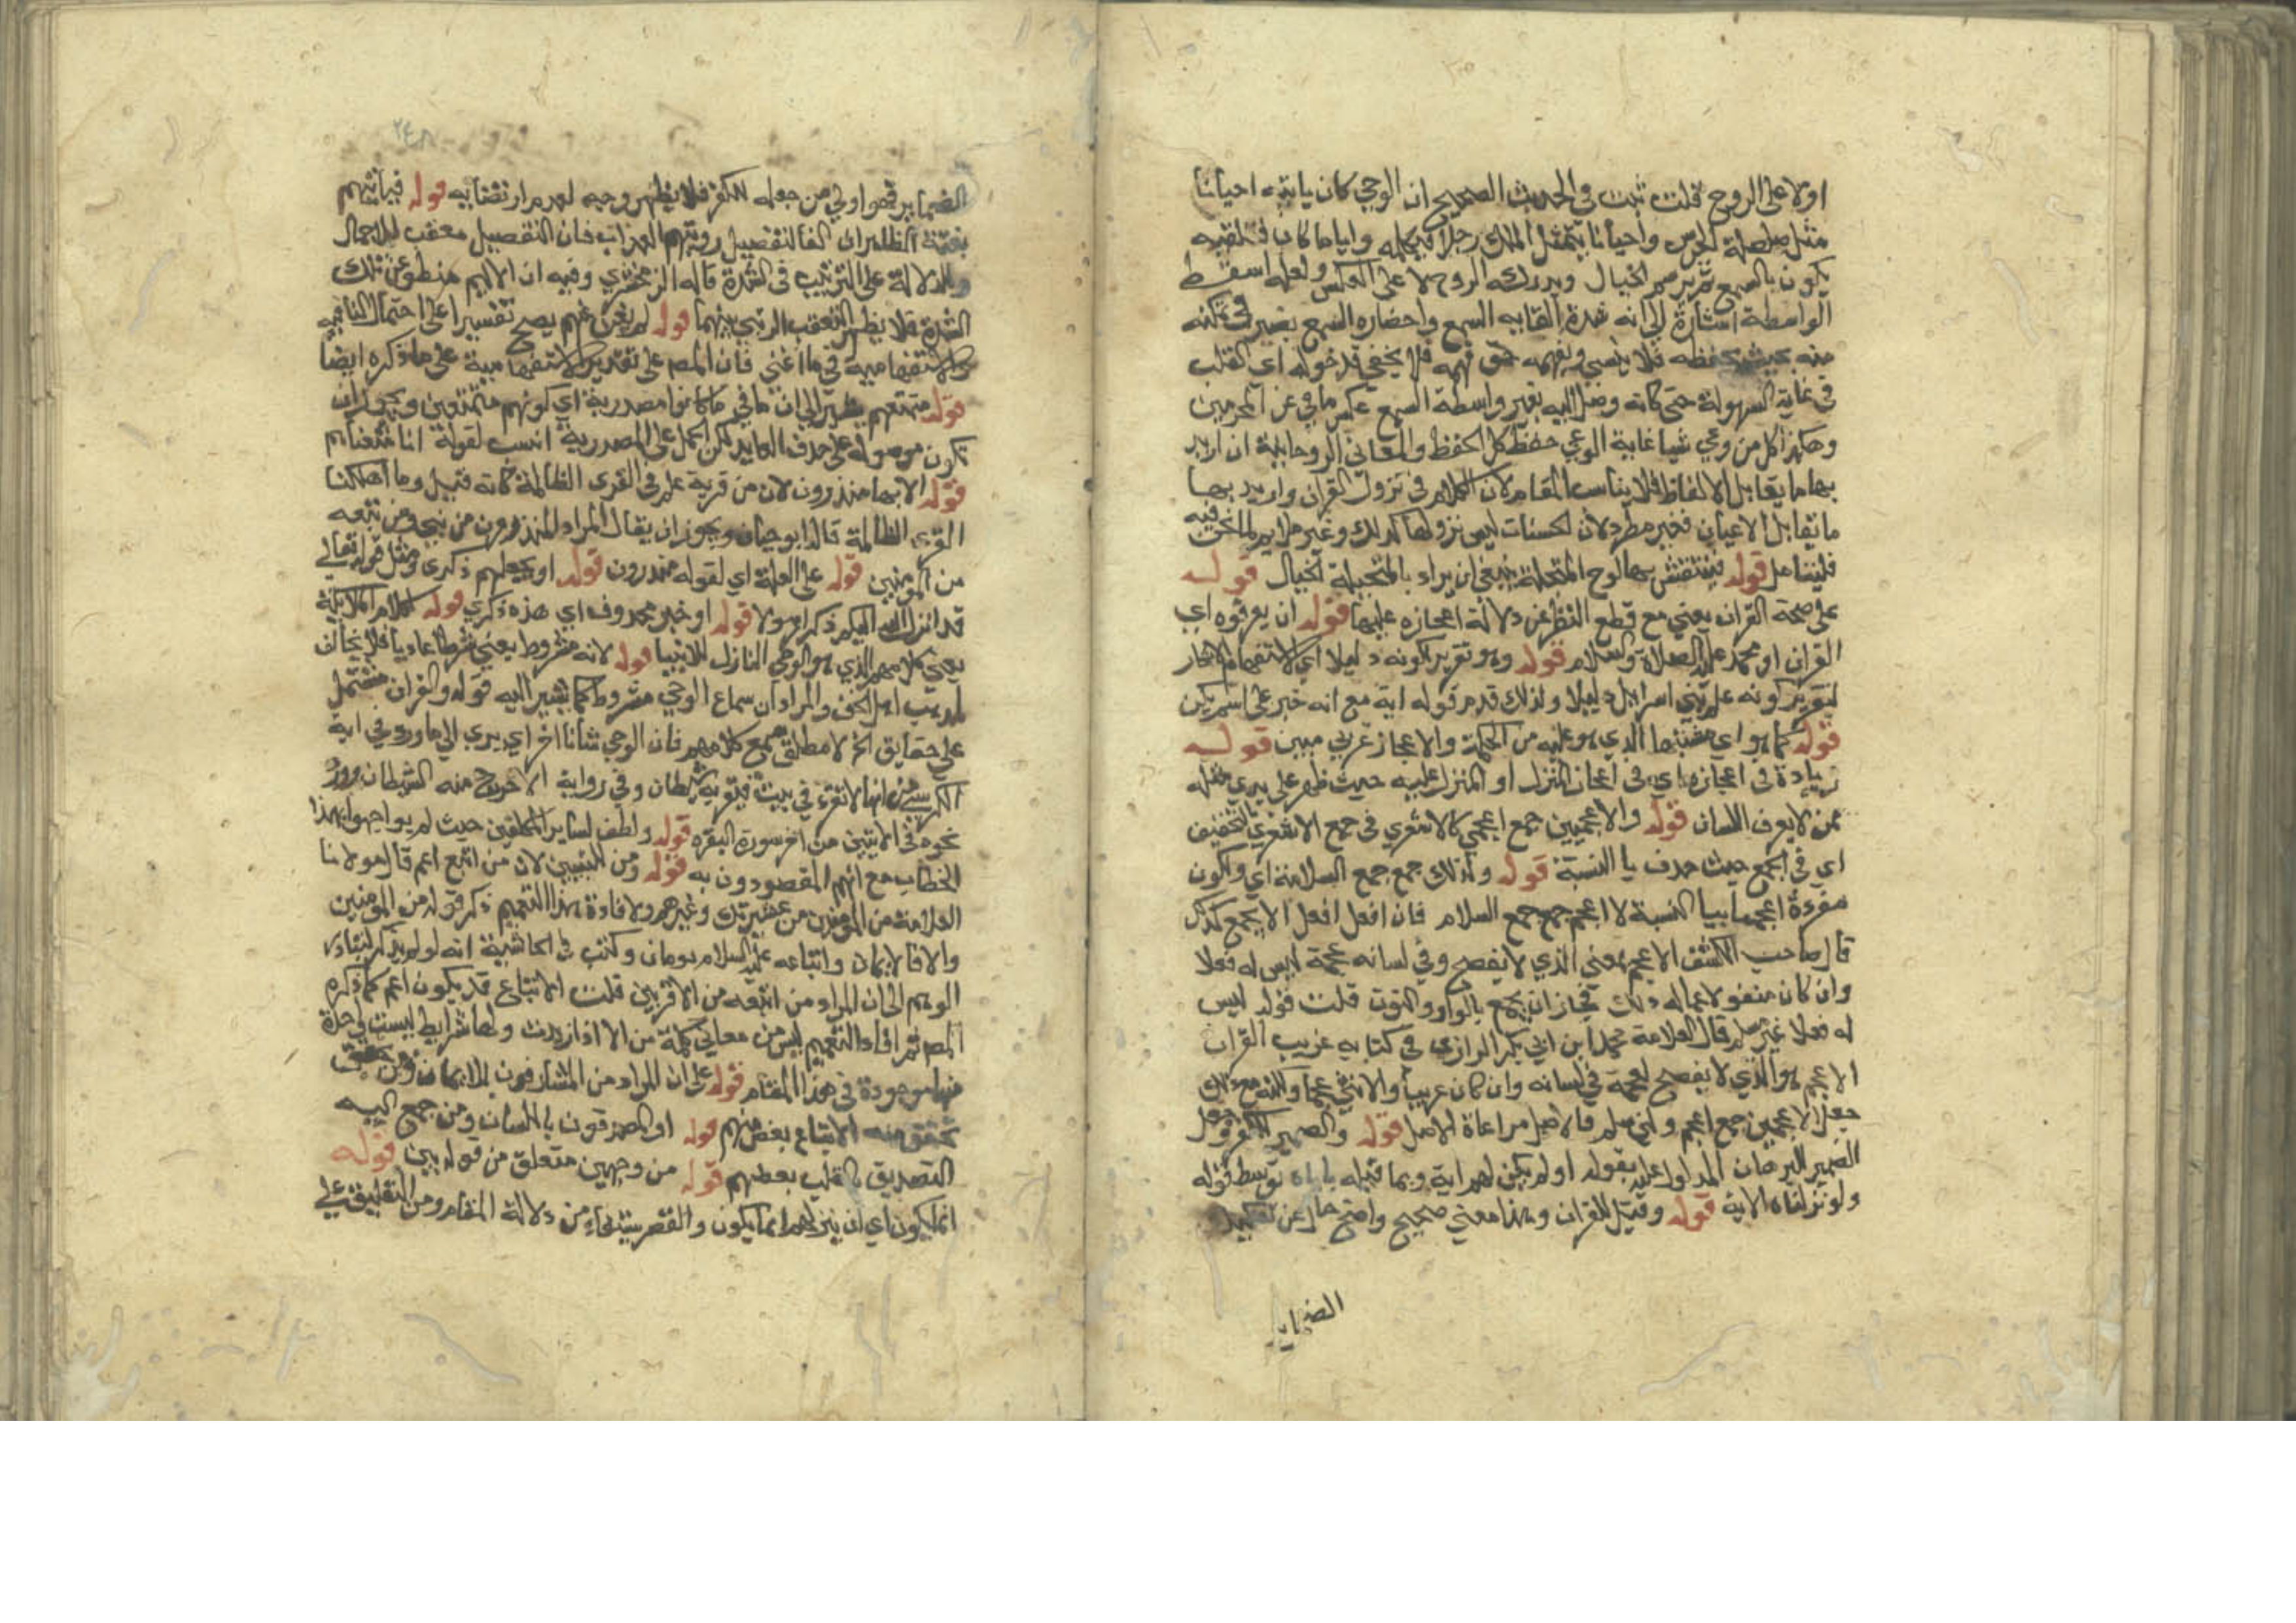 اولا على الروح قلت ثبت في الحديث الصحيح ان الوحي كان ياتيه احيانا
مثل صلصلة الجرس واحيانا يتمثل الملك رجلا فيكلمه واياما كان فتلقيه
يكون بالسمع ثم يرتسم الخيال ويدركه الروح لا على العكس ولعله اسقط
الواسطة اشارة الى انه شدة القايه السمع واحضاره السمع بغير
منه بحيث يحفظه فلا ينسى ويفهمه حق فهمه فلا يخفى قد خوله اي القلب
في غاية السهولة حتى كانه وصل اليه بغير واسطة السمع عكس ما في عن المجرمين
وهكذا كل من وعي شيا غاية الوعي حفظ كل الحفظ والمعاني الروحانية ان اريد
بها ما يقابل الالفاظ فلا يناسب المقام لان الكلام في نزول القران واريد بها
ما يقابل الاعيان فغير مطرد لان الحسنات ليس نزولها كذلك وغير ملايم لما نحن فيه
فليتامل قوله فينتقش بها لوح المتخيلة ينبغي ان يراد بالمتخيلة الخيال قوله
على صحة القران يعني مع قطع النظر عن دلالة اعجازه عليها قوله ان يعرفوه اي
القران او محمد عليه الصلاة والسلام قوله وهو تقرير لكونه دليلا اي الاستفهام الانكار
لتقرير كونه علم بني اسرايل دليلا ولذلك قدم قوله اية مع انه خبر على اسم يكن
قوله كما هو اي مقتبنها الذي هو عليه من الحكمة والاعجاز عربي مبين قوله
زيادة في اعجازه اي في اعجاز المنزل او المنزل عليه حيث ظهر على يدي مثله
ممن لا يعرف اللسان قوله والاعجميين جمع اعجمي كالاشعري في جمع الاشعري بالتخفيف
اي في الجمع حيث حذف يا النسبة قوله ولذلك جمع جمع السلامة اي ولكون
مفرده اعجميا بيا النسبة لا اعجم جمع جمع السلام فان افعل افعل لا يجمع كذلك
قال صاحب الكشف الاعجم بمعنى الذي لا يفصح وفي لسانه عجمة ليس له فعلا
وان كان منقولا عماله ذلك فجاز ان يجمع بالواو والنون قلت قوله ليس
له فعلا غير مسلم قال العلامة محمد ابن ابي بكر الرازي في كتابه غريب القران
الاعجم هو الذي لا يفصح لعجمة في لسانه وان كان عربيا والانثى عجما ولكنه مع ذلك
جعل الاعجمين جمع اعجم ولئن سلم فالاصل مراعاة الاصل قوله والضمير للكفر وجعل
الضمير للبرهان المدلول عليه بقوله اولم يكن لهم اية وبما قبله ياباه توسط قوله
ولو نزلناه الاية قوله وقيل للقران وهذا معنى صحيح واضح خال عن تفكيك
الضماير
٢٤٨
الضماير فهو اولى من جعله للكفر فلا يظهر وجيه لعدم ارتضايه قوله فياتيهم
بغتة الظاهر ان الفا لتفصيل رويتهم العذاب فان التفصيل معقب للاجمال
وللدلالة على الترتيب في الشدة قاله الزمخشري وفيه ان الاليم منطو عن تلك
الشدة فلا يظهر التعقب الرتبي بينهما قوله لم يغن عنهم يصح تفسيرا على احتمال النافية
والاستفهامية في ما اغنى فان المص على تقدير الاستفهامية على ما ذكره ايضا
قوله متمتعهم يشير الى ان ما في ما كانوا مصدرية اي كونهم متمتعين ويجوز ان
تكون موصولة على حذف العايد لكن الحمل على المصدرية انسب لقوله انا متعناهم
قوله الا لها منذرون لان من قرية علم في القرى الظالمة كانه قيل وما اهلكنا
القرى الظالمة قاله ابو حيان ويجوز ان يقال المراد المنذرون من نبي ومن تبعه
من المومنين قوله على العلة اي لقوله منذرون قوله او بجعلهم ذكرى ومثل قوله تعالى
قد انزل الله اليكم ذكرا رسولا قوله او خبر محذوف اي هذه ذكرى قوله لكلام الملايكة
يعني كلامهم الذي هو الوحي النازل للانبيا قوله لانه مشروط يعني شرطا عاديا فلا يخالف
مذهب اهل الحق والمراد ان سماع الوحي مشروط كما يشير اليه قوله والقران مشتمل
على حقايق الخ لا مطلق سمع كلامهم فان الوحي شانا اخر اي يرى الى ما ورد في اية
الكرسي من انها لا تقرء في بيت فيقربه شيطان وفي رواية الا خرج منه الشيطان وورد
نحوه في الايتين من اخر سورة البقرة قوله ولطف لساير المكلفين حيث لم يواجهوا بهذا
الخطاب مع انهم المقصودون به قوله ومن للتبيين لان من اتبع اعم قال مولانا
العلامة من المومنين من عشيرتك وغيرهم ولافادة هذا التعميم ذكر قوله من المومنين
والا فالايمان واتباعه عليه السلام توءمان وكتب في الحاشية انه لو لم يذكر لتبادر
الوهم الى ان المراد من اتبعه من الاقربين قلت الاتباع قد يكون اعم كما ذكره
المص ثم افادة التعميم ليس من معاني كلمة من الا اذا زيدت ولها شرايط ليست واحدة
منها موجودة في هذا المقام قوله على ان المراد من المشارفون للايمان ومن
تحقق منه الاتباع بعض منهم قوله او المصدقون باللسان ومن جمع اليه
التصديق بالقلب بعضهم قوله من وجهين متعلق من قوله بين قوله
انما يكون اي ان ينزلهم انما يكون والقصر يستفاد من دلالة المقام ومن التعليق على